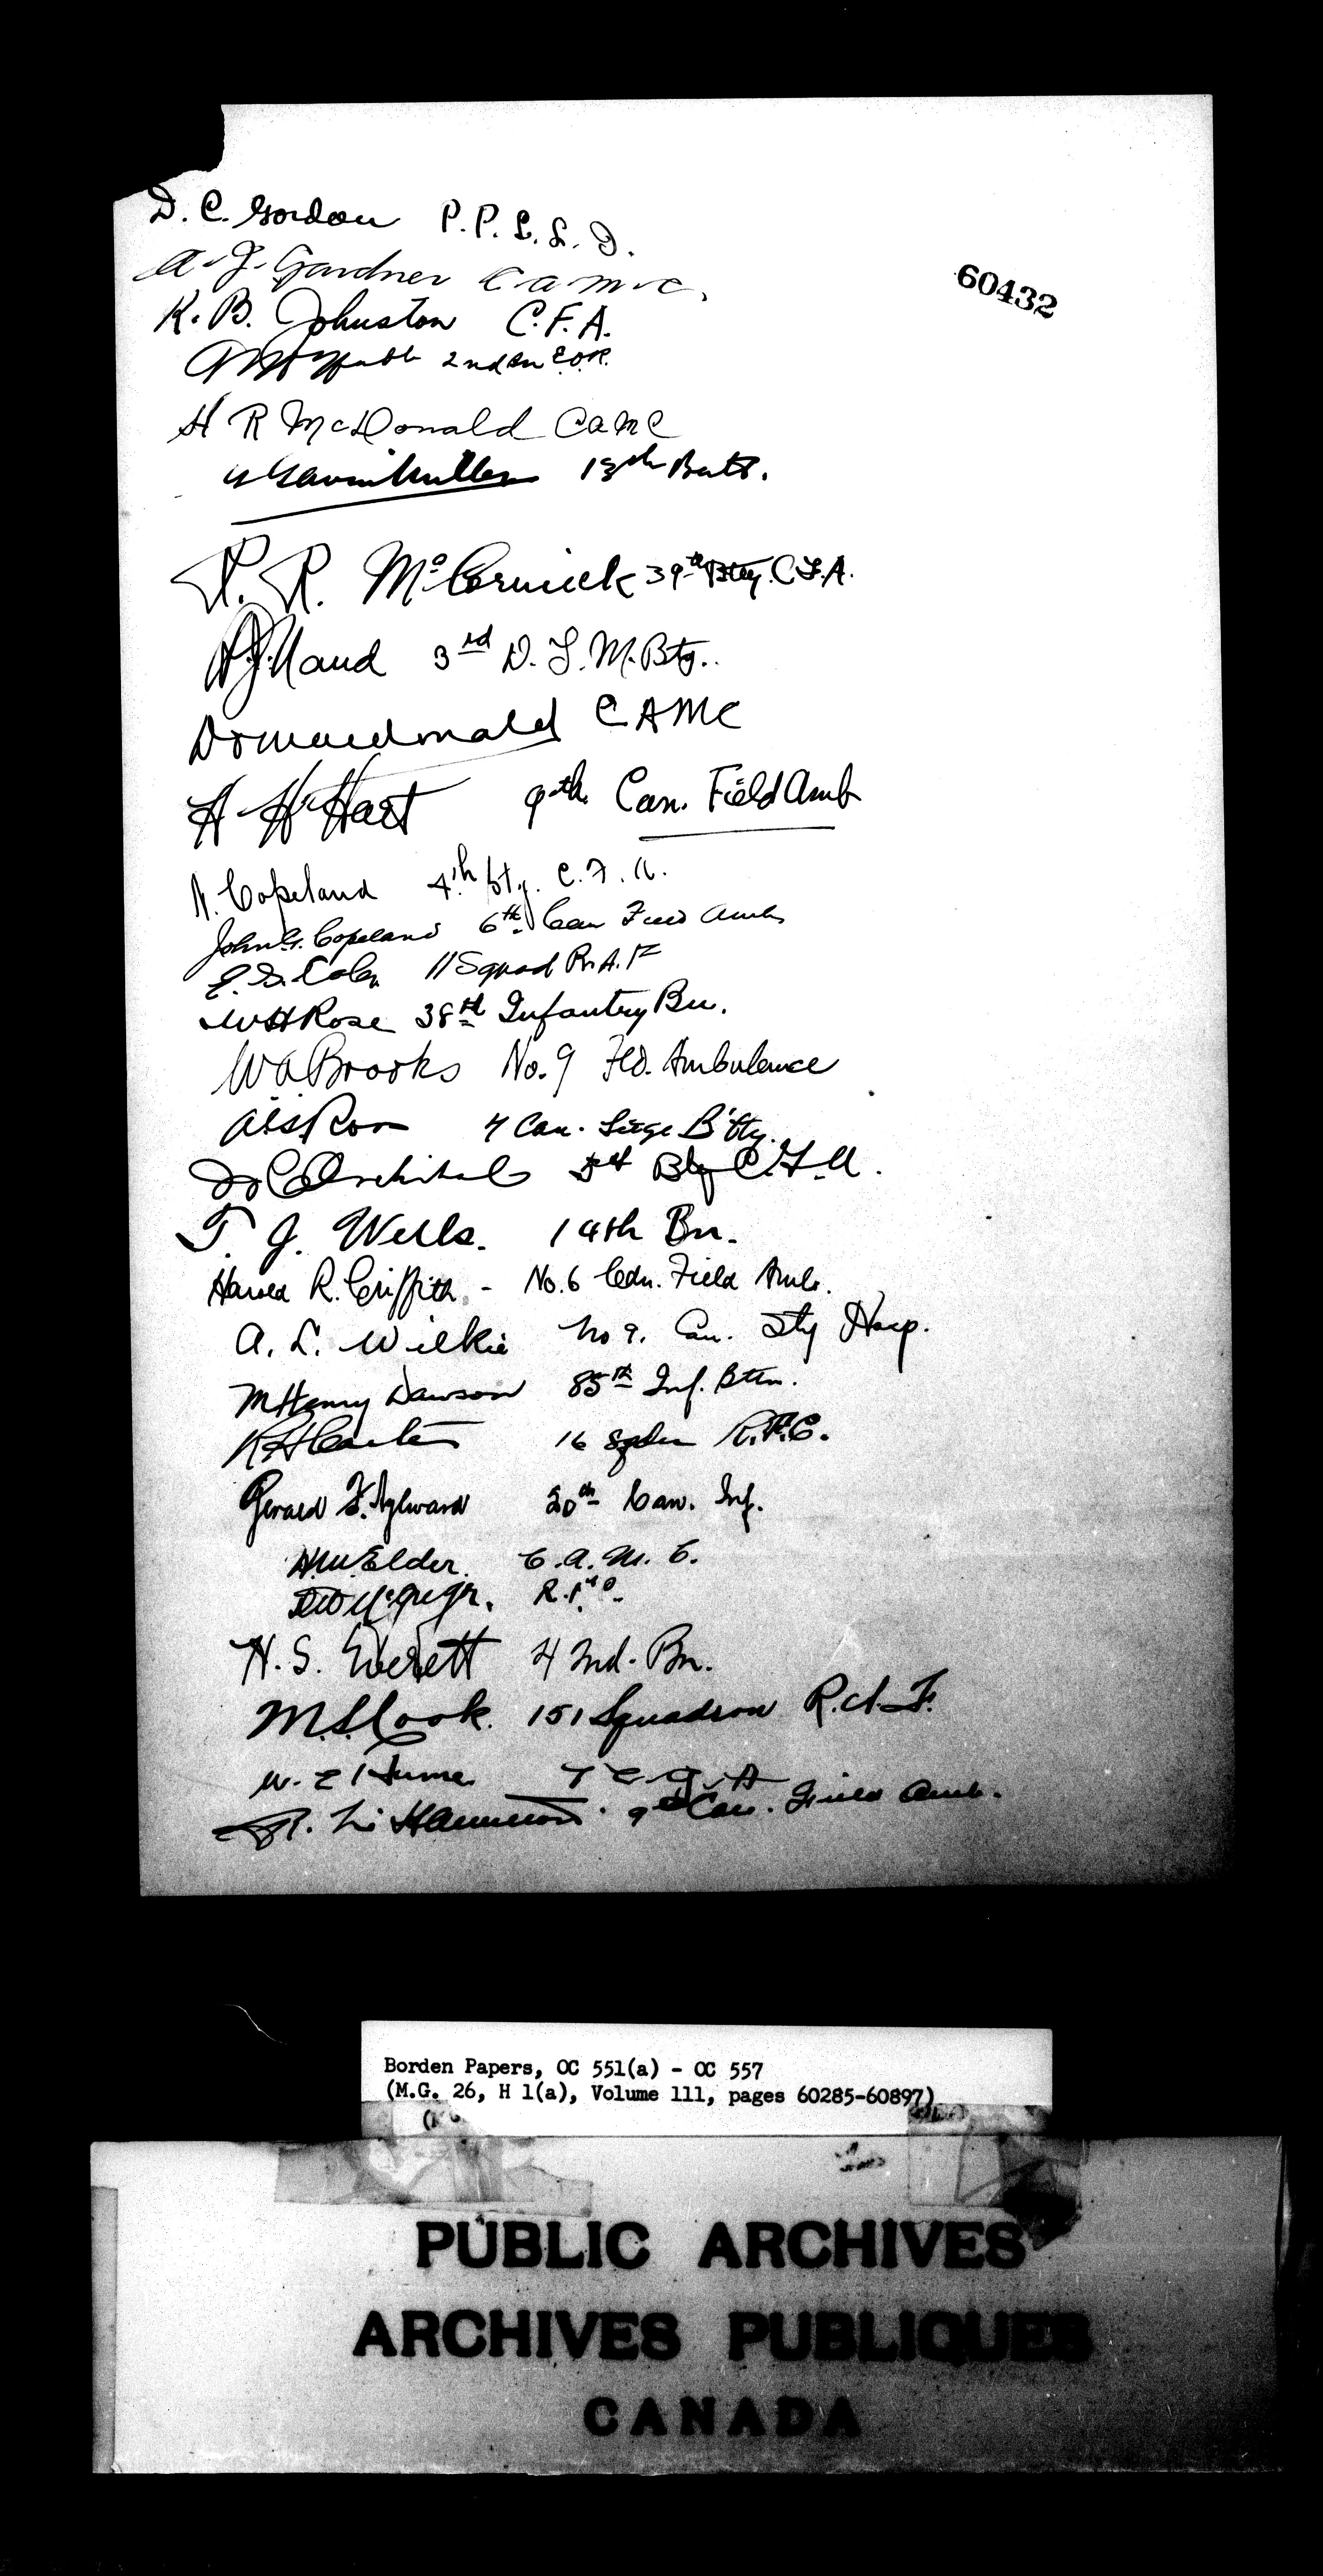 D. C. Gordon P.P.C.L.I.
60432
A. J. Gardner C.A.M.C.
K. B. Johnston C.F.A.
2nd Bn E.O.R.
H R McDonald CAMC
13th Batt.
R. R. McCormick 39th Bty. C.F.A.
3rd D. T. M. Bty.
Macdonald CAMC
H. H. Hart 9th Can. Field Amb
N. Copeland 4th bty. C.F.A.
John G. Copeland 6th Can Field Amb
11 Squad R.A.F
W H Rose 38th Infantry Bn.
W A Brooks No. 9 Fld. Ambulance
A E S Ross 4 Can. Siege B'tty.
Archibald Bty C.F.A.
T. J. Wells. 14th Bn.
Harold R. Griffith - No. 6 Cdn. Field Amb.
A. L. Wilkie No 9. Can. Sty Hosp.
M Henry Dawson 85th Inf. Bttn.
K H Carter 16 Sqdn R.F.C.
Gerald F. Aylward 20th Can. Inf.
H.M. Elder. C.A.M.C.
R.F.C.
H. S. Everett 42nd. Bn.
M.S. Cook. 151 Squadron R.A.F.
W. E Hume 7 C.G.A
R. L. Hammond. 9th Can. Field Amb.
Borden Papers, OC 551(a) - OC 557
(M.G. 26, H 1(a), Volume 111, pages 60285-60897)
PUBLIC ARCHIVES
ARCHIVES PUBLIQUES
CANADA